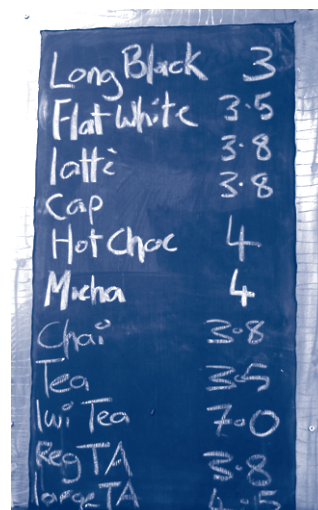 Long Black 3
Flat White 3.5
latti 3.8
Cap 3.8
Hot Choc 4
Mocha 4
Chai 3.8
Tea 3.5
Iwi Tea 7.0
Reg TA 3.8
large TA 4.5